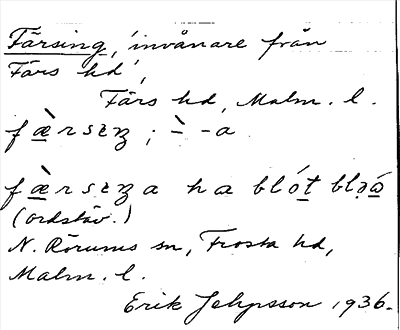 Färsing, 'invånare från
Färs hd',
Färs hd, Malm. l.
fæ̀rsɛŋ ; -̀ -a
fæ̀rsɛŋa ha blót blǫó
(ordstäv.)
N. Rörums sn, Frosta hd,
Malm. l.
Erik Jehpsson 1936.